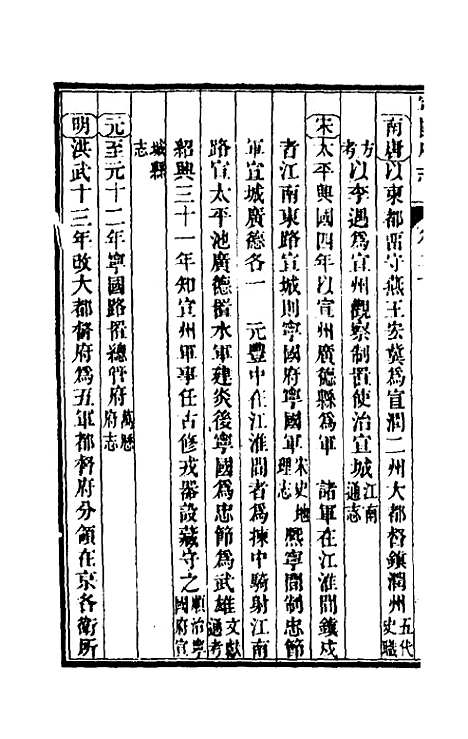 南唐以東都畱守燕王宏冀爲宣潤二州大都督鎭潤州五代史職
方考以李遇爲宣州觀察制置使治宣城江南通志
宋太平興國四年以宣州廣德縣爲軍 諸軍在江淮間鎭戍
者江南東路宣城則寧國府寧國軍宋史地理志 熙寧間制忠節
軍宣城廣德各一 元豐中在江淮間者爲揀中騎射江南
路宣太平池廣德置水軍建炎後寧國爲忠節爲武雄文獻通考
紹興三十一年知宣州軍事任古修戎器設藏守之順治寧國府宣
城縣志
元至元十二年寧國路置總管府萬曆府志
明洪武十三年改大都督府爲五軍都督府分領在京各衛所